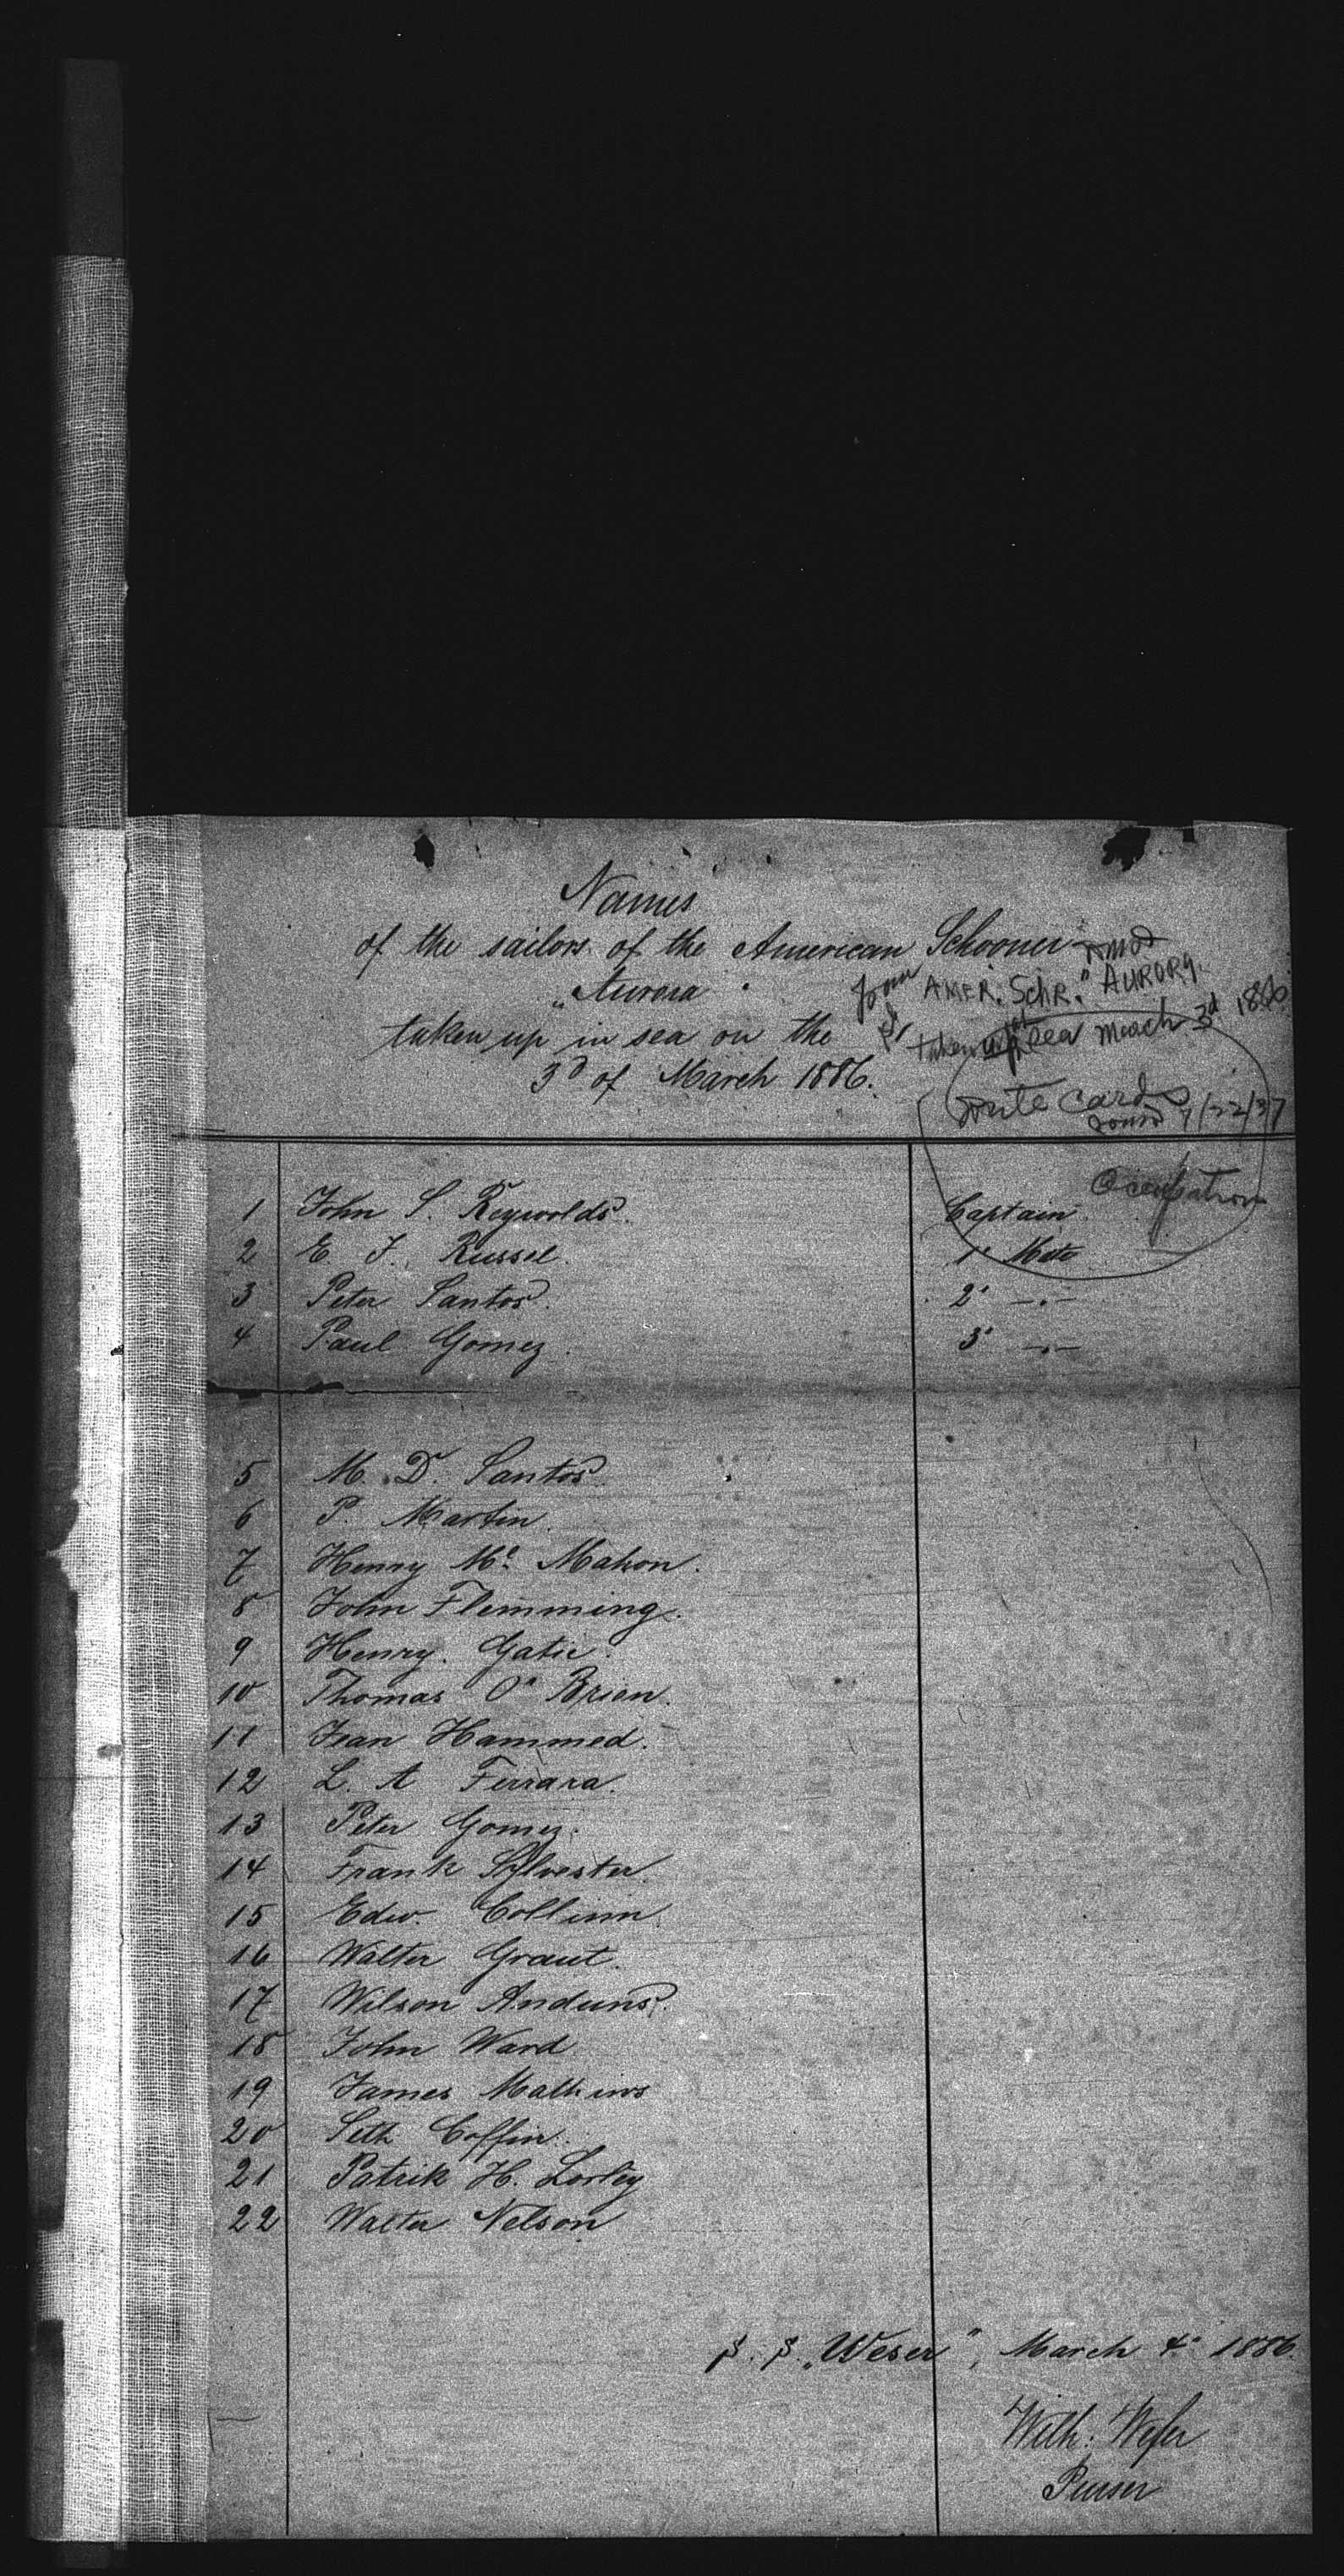 Names
of the sailors of the American Schooner
„Aurora"
taken up in sea on the
3d of March 1886.
from
AMER. Schr. "AURORA.
taken up at sea March 3d 1886
write cards
7/22/37
Occupation
1 John S. Reynolds. Captain.
2 E. J. Russel. 1st Mate
3 Peter Santos. 2d —"—
4 Paul Gomez. 3d —"—
5 M. D. Santos.
6 P. Martin.
7 Henry Mc Mahon.
8 John Flemming.
9 Henry. Gatie.
10 Thomas O' Brien.
11 Jean Hammed.
12 L. A Ferrara.
13 Peter Gomez.
14 Frank Sylvester.
15 Edw. Collinn.
16 Walter Graut.
17 Wilson
18 John Ward.
19 James Mathews
20 Seth Coffin.
21 Patrik H. Lorley
22 Walter Nelson
S. S. „Weser", March 4" 1886.
Wilh: Weser
Purser